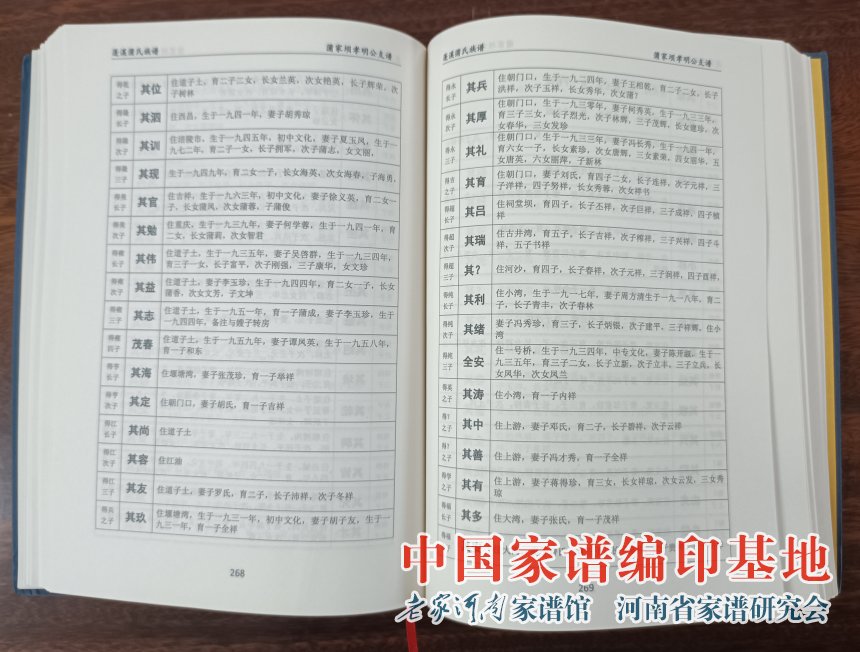 蓬溪蒲氏族谱
蒲家坝孝明公支谱
得乾之子 其位 住道子土，育二子二女，长女兰英，次女艳英，长子辉荣，次子树林
得隆长子 其泗 住西昌，生于一九四一年，妻子胡秀琼
得隆次子 其训 住涪陵市，生于一九四五年，初中文化，妻子夏玉凤，生于一九七二年，育二子一女，长子拥军，次子蒲志，女文丽，
得隆三子 其现 生于一九四九年，育二女一子，长女海英，次女海春，子海勇，
长子 其官 住吉祥，生于一九六三年，初中文化，妻子徐义英，育二女一子，长女蒲凤，次女蒲蓉，子蒲俊
次子 其勉 住重庆，生于一九三九年，妻子何学蓉，生于一九四一年，育二女，长女蒲莉，次女智君
长子 其伟 住道子土，生于一九三五年，妻子吴啓群，生于一九三四年，育三子一女，长子富平，次子刚强，三子康华，女文珍
次子 其益 住道子土，妻子李玉珍，生于一九四四年，育二女一子，长女蒲香，次女文芳，子文坤
三子 其志 住道子土，生于一九五一年，育一子蒲成，妻子李玉珍，生于一九四四年，备注与嫂子转房
四子 茂春 住道子土，生于一九五九年，妻子谭凤英，生于一九五八年，育一子和东
得亨长子 其海 住堰塘湾，妻子张茂珍，育一子举祥
得亨次子 其定 住朝门口，妻子胡氏，育一子吉祥
得江长子 其尚 住道子土
得江次子 其容 住江油
得江三子 其友 住道子土，妻子罗氏，育二子，长子沛祥，次子冬祥
得兵之子 其玖 住堰塘湾，生于一九三一年，初中文化，妻子胡子友，生于一九三一年，育一子全祥
268
蓬溪蒲氏族谱
蒲家坝孝明公支谱
得永长子 其兵 住朝门口，生于一九二四年，妻子王相乾，育二子二女，长子洪祥，次子玉祥，长女秀华，次女蒲？
得永次子 其厚 住朝门口，生于一九三零年，妻子何秀英，生于一九三三年，育三子三女，长子烈光，次子林辉，三子茂辉，长女建珍，次女春华，三女发珍
得永三子 其礼 住朝门口，生于一九三三年，妻子冯长秀，生于一九四一年，育六女一子，长女素珍，次女唐辉，三女素荣，四女丽华，五女唐英，六女丽萍，子新林
得吉之子 其育 住朝门口，妻子刘氏，育四子二女，长子连祥，次子元祥，三子洋祥，四子努祥，长女秀蓉，次女祥书
得超长子 其吕 住祠堂坝，育四子，长子丕祥，次子巨祥，三子成祥，四子植祥
得超次子 其瑞 住古井湾，育五子，长子吉祥，次子樟祥，三子兴祥，四子斗祥，五子书祥
得超三子 其？ 住河沙，育四子，长子春祥，次子元祥，三子润祥，四子酉祥，
得纯长子 其利 住小湾，生于一九一七年，妻子周方清生于一九一八年，育二子，长子青丰，次子春林
得纯次子 其绪 妻子冯秀珍，育三子，长子炳银，次子建平，三子祥辉，住小湾
得纯三子 全安 住一号桥，生于一九三四年，中专文化，妻子陈开淑，生于一九三五年，育三子二女，长子立新，次子立丰，三子立兵，长女凤华，次女凤兰
得英之子 其涛 住小湾，育一子内祥
得？之子 其中 住上游，妻子邓氏，育二子，长子碧祥，次子云祥
得？之子 其善 住上游，妻子冯才秀，育一子全祥
得李之子 其有 住上游，妻子蒋得珍，育三女，长女祥琼，次女云发，三女秀琼
长子 其多 住大湾，妻子张氏，育一子茂祥
269
中国家谱编印基地
老家河南家谱馆 河南省家谱研究会